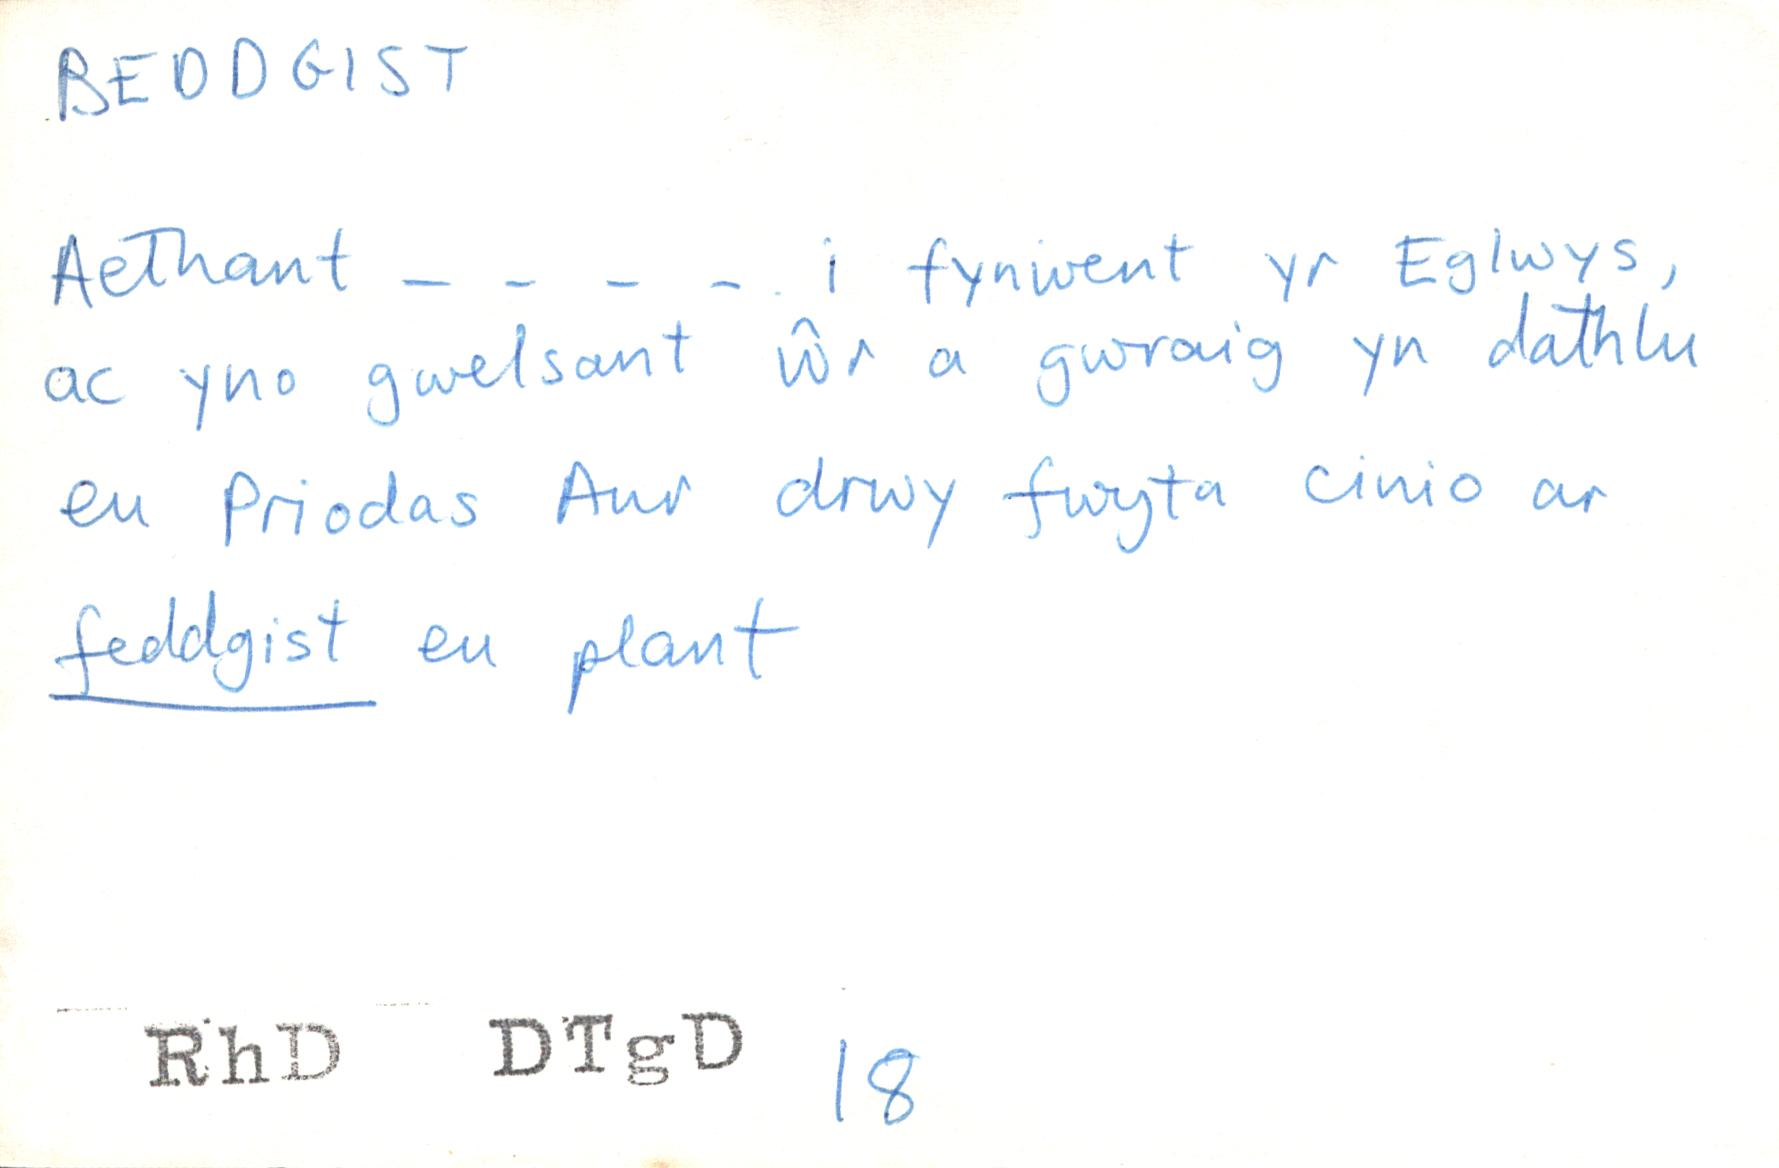 BEDDGIST
Aethant _ _ _ _ . i fynwent yr Eglwys,
ac yno gwelsant ŵr a gwraig yn dathlu
eu Priodas Aur drwy fwyta cinio ar
feddgist eu plant
RhD DTgD 18